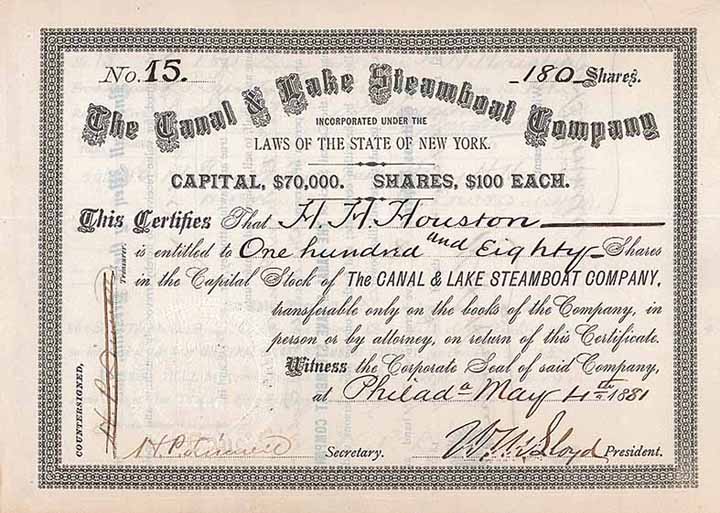 No. 15.
180 Shares.
The Canal & Lake Steamboat Company
INCORPORATED UNDER THE
LAWS OF THE STATE OF NEW YORK.
CAPITAL, $70,000. SHARES, $100 EACH.
This Certifies That H. H. Houston
is entitled to One hundred and Eighty Shares
in the Capital Stock of THE CANAL & LAKE STEAMBOAT COMPANY,
transferable only on the books of the Company, in
person or by attorney, on return of this Certificate.
Witness the Corporate Seal of said Company,
at Philada May 4th 1881
Secretary.
President.
COUNTERSIGNED,
Treasurer.